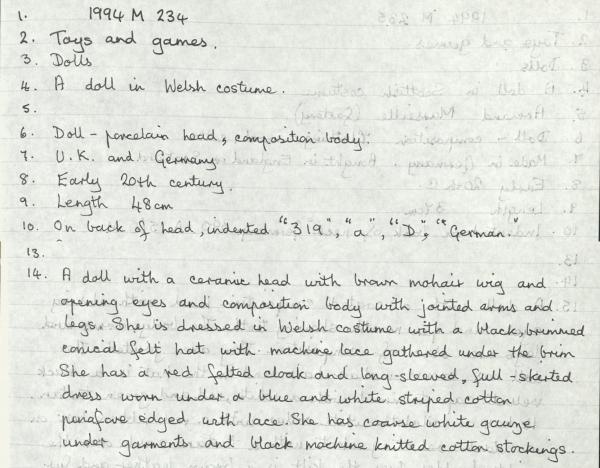 1. 1994 M 234
2. Toys and games.
3. Dolls
4. A doll in Welsh costume.
5.
6. Doll - porcelain head, composition body.
7. U.K. and Germany
8. Early 20th century.
9. Length 48cm
10. On back of head, indented "319", "a", "D", "German."
13.
14. A doll with a ceramic head with brown mohair wig and
opening eyes and composition body with jointed arms and
legs. She is dressed in Welsh costume with a black, brimmed
conical felt hat with machine lace gathered under the brim
She has a red felted cloak and long-sleeved, full-skirted
dress worn under a blue and white striped cotton
pinafore edged with lace. She has coarse white gauze
under garments and black machine knitted cotton stockings.